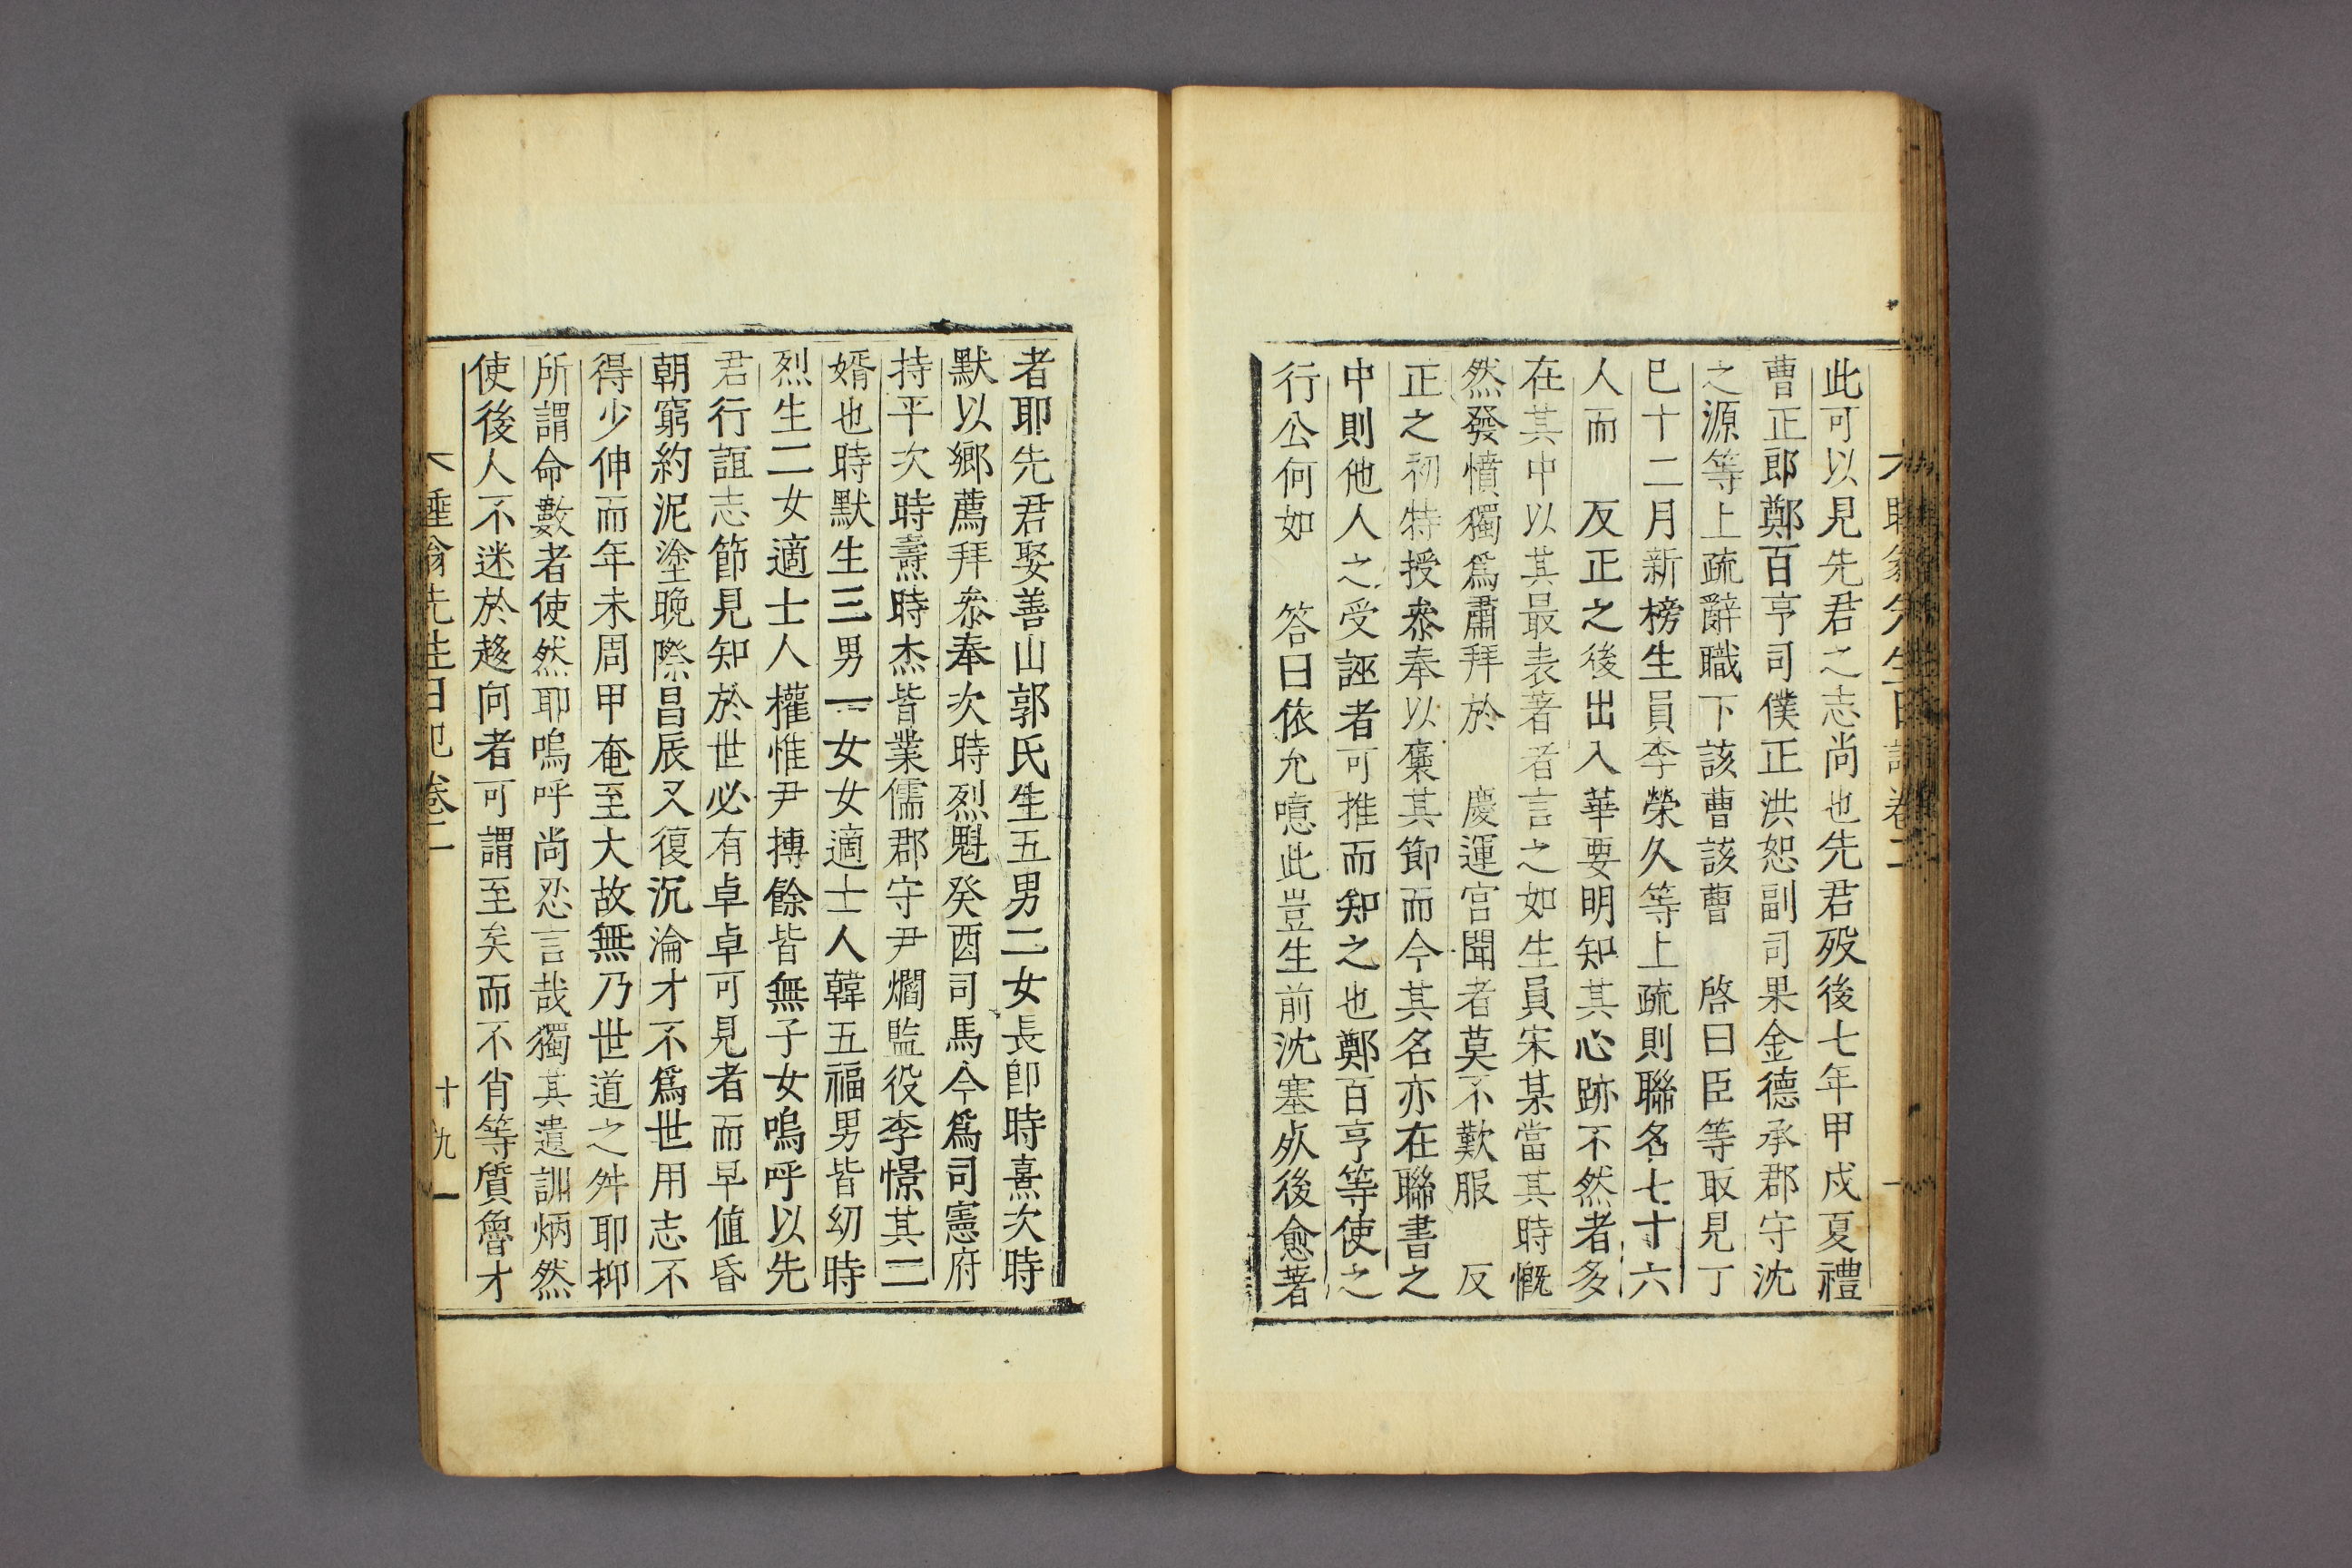 此可以見先君之志尚也先君歿後七年甲戌夏禮
曹正郎鄭百亨司僕正洪恕副司果金德承郡守沈
之源等上疏辭職下該曹該曹 啓曰臣等取見丁
巳十二月新榜生員李榮久等上疏則聯名七十六
人而 反正之後出入華要明知其心跡不然者多
在其中以其最表著者言之如生員宋某當其時慨
然發憤獨爲肅拜於 慶運宮聞者莫不歎服 反
正之初特授叅奉以褒其節而今其名亦在聯書之
中則他人之受誣者可推而知之也鄭百亨等使之
行公何如 答曰依允噫此豈生前沈塞㱙後愈著
者耶先君娶善山郭氏生五男二女長卽時熹次時
默以鄕薦拜叅奉次時烈魁癸酉司馬今爲司憲府
持平次時燾時杰皆業儒郡守尹爓監役李憬其二
婿也時默生三男一女女適士人韓五福男皆幼時
烈生二女適士人權惟尹搏餘皆無子女嗚呼以先
君行誼志節見知於世必有卓卓可見者而早値昏
朝窮約泥塗晩際昌辰又復沉淪才不爲世用志不
得少伸而年未周甲奄至大故無乃世道之舛耶抑
所謂命數者使然耶嗚呼尙忍言哉獨其遺訓炳然
使後人不迷於趍向者可謂至矣而不肖等質魯才
睡翁先生日記卷二
十九